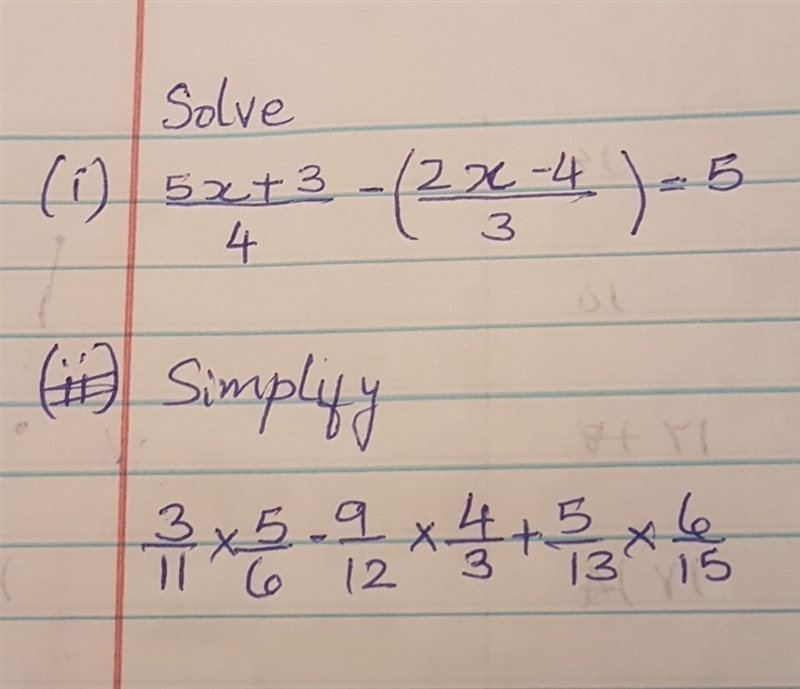 Solve
(i) (5x+3)/4 - ((2x-4)/3) = 5
(ii) Simplify
3/11 × 5/6 - 9/12 × 4/3 + 5/13 × 6/15